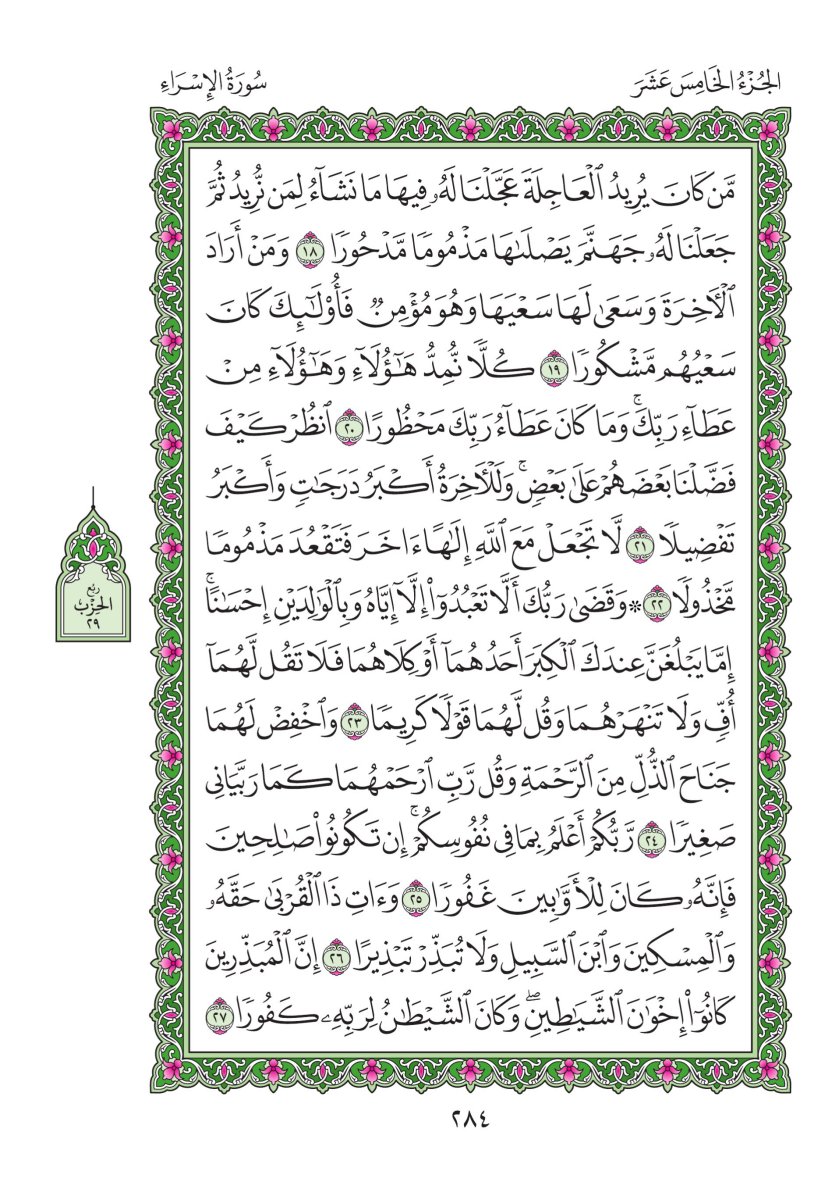 الجُزْءُ الخَامِسَ عَشَرَ
سُورَةُ الإِسْرَاءِ
مَّن كَانَ يُرِيدُ ٱلْعَاجِلَةَ عَجَّلْنَا لَهُۥ فِيهَا مَا نَشَآءُ لِمَن نُّرِيدُ ثُمَّ
جَعَلْنَا لَهُۥ جَهَنَّمَ يَصْلَىٰهَا مَذْمُومًا مَّدْحُورًا ١٨ وَمَنْ أَرَادَ
ٱلْأٓخِرَةَ وَسَعَىٰ لَهَا سَعْيَهَا وَهُوَ مُؤْمِنٌ فَأُو۟لَٰٓئِكَ كَانَ
سَعْيُهُم مَّشْكُورًا ١٩ كُلًّا نُّمِدُّ هَٰٓؤُلَآءِ وَهَٰٓؤُلَآءِ مِنْ
عَطَآءِ رَبِّكَۚ وَمَا كَانَ عَطَآءُ رَبِّكَ مَحْظُورًا ٢٠ ٱنظُرْ كَيْفَ
فَضَّلْنَا بَعْضَهُمْ عَلَىٰ بَعْضٍۚ وَلَلْأٓخِرَةُ أَكْبَرُ دَرَجَٰتٍ وَأَكْبَرُ
تَفْضِيلًا ٢١ لَّا تَجْعَلْ مَعَ ٱللَّهِ إِلَٰهًا ءَاخَرَ فَتَقْعُدَ مَذْمُومًا
مَّخْذُولًا ٢٢ * وَقَضَىٰ رَبُّكَ أَلَّا تَعْبُدُوٓا۟ إِلَّآ إِيَّاهُ وَبِٱلْوَٰلِدَيْنِ إِحْسَٰنًاۚ
إِمَّا يَبْلُغَنَّ عِندَكَ ٱلْكِبَرَ أَحَدُهُمَآ أَوْ كِلَاهُمَا فَلَا تَقُل لَّهُمَآ
أُفٍّ وَلَا تَنْهَرْهُمَا وَقُل لَّهُمَا قَوْلًا كَرِيمًا ٢٣ وَٱخْفِضْ لَهُمَا
جَنَاحَ ٱلذُّلِّ مِنَ ٱلرَّحْمَةِ وَقُل رَّبِّ ٱرْحَمْهُمَا كَمَا رَبَّيَانِى
صَغِيرًا ٢٤ رَّبُّكُمْ أَعْلَمُ بِمَا فِى نُفُوسِكُمْۚ إِن تَكُونُوا۟ صَٰلِحِينَ
فَإِنَّهُۥ كَانَ لِلْأَوَّٰبِينَ غَفُورًا ٢٥ وَءَاتِ ذَا ٱلْقُرْبَىٰ حَقَّهُۥ
وَٱلْمِسْكِينَ وَٱبْنَ ٱلسَّبِيلِ وَلَا تُبَذِّرْ تَبْذِيرًا ٢٦ إِنَّ ٱلْمُبَذِّرِينَ
كَانُوٓا۟ إِخْوَٰنَ ٱلشَّيَٰطِينِۖ وَكَانَ ٱلشَّيْطَٰنُ لِرَبِّهِۦ كَفُورًا ٢٧
رُبْع
الحِزْب
٢٩
٢٨٤